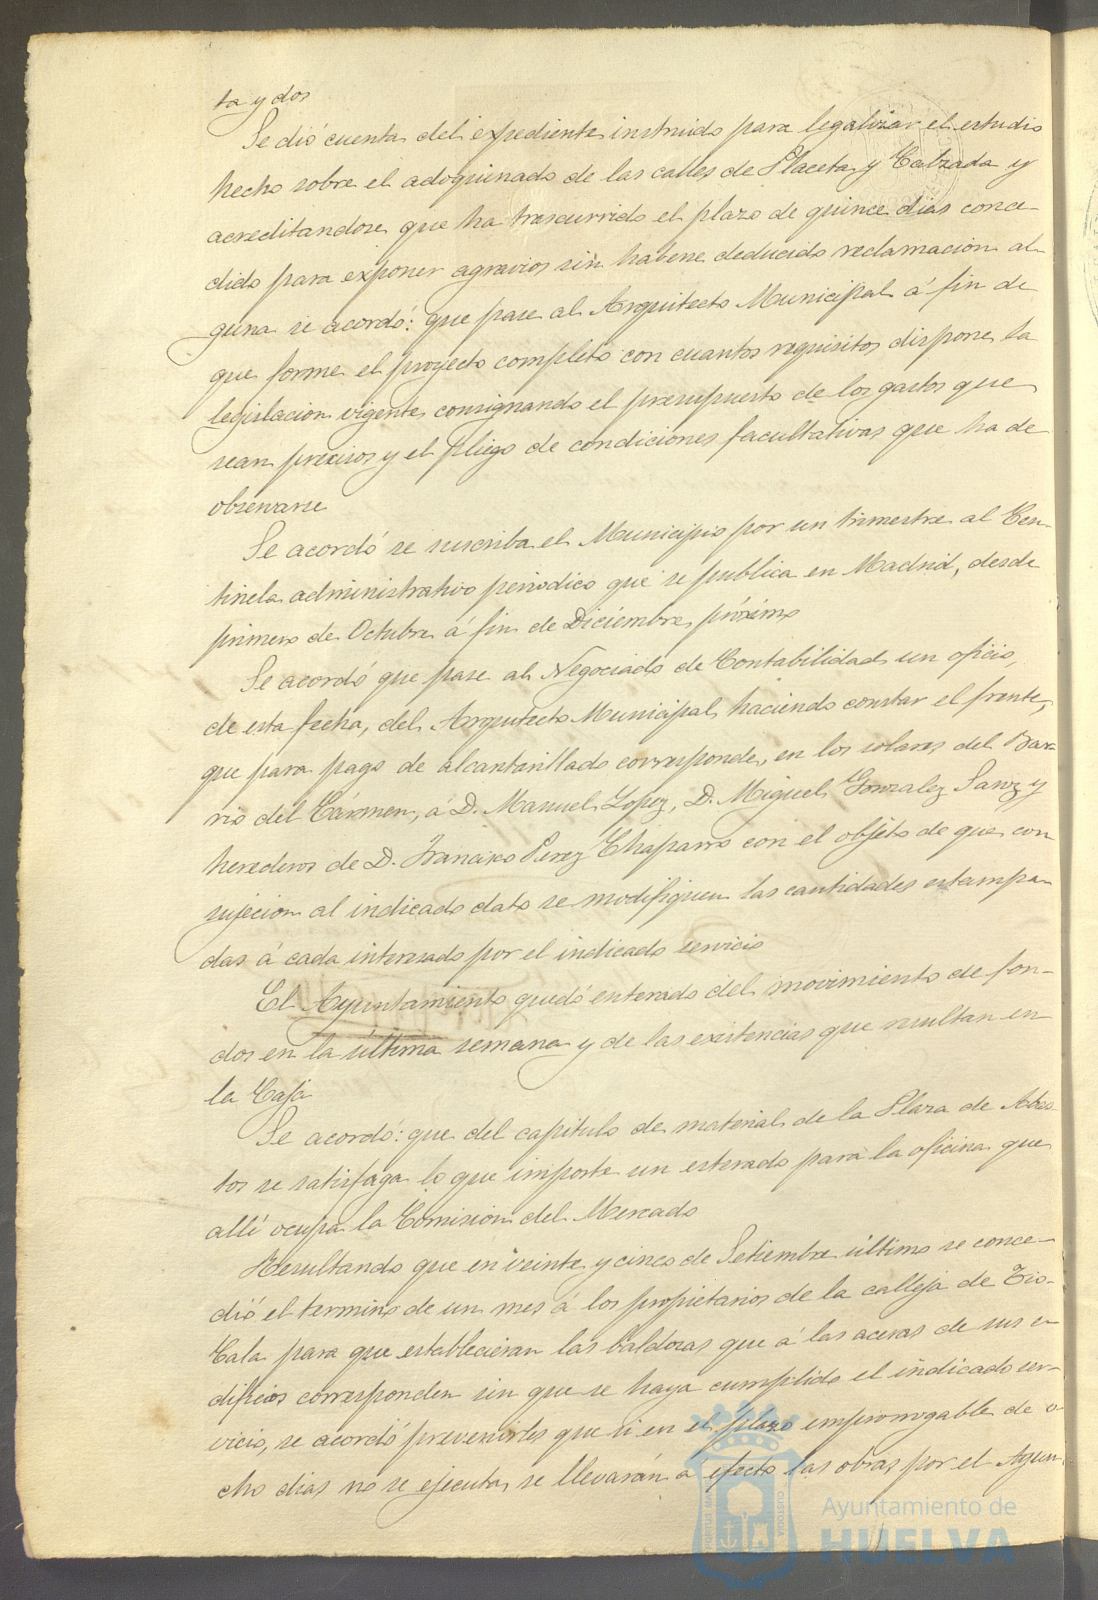 ta y dos
Se dió cuenta del expediente instruido para legalizar el estudio
hecho sobre el adoquinado de las calles de Placeta y Calzada y
acreditandose que ha trascurrido el plazo de quince dias conce-
dido para exponer agravios sin haberse deducido reclamacion al-
guna se acordó: que pase al Arquitecto Municipal á fin de
que forme el proyecto completo con cuantos requisitos dispone la
legislacion vigente consignando el presupuesto de los gastos que
sean precisos y el pliego de condiciones facultativas que ha de
observarse
Se acordó se suscriba el Municipio por un trimestre al Cen-
tinela administrativo periodico que se publica en Madrid, desde
primero de Octubre á fin de Diciembre próximo
Se acordó que pase al Negociado de Contabilidad un oficio,
de esta fecha, del Arquitecto Municipal haciendo constar el frente,
que para pago de alcantarillado corresponde, en los solares del Bar-
rio del Cármen, á D. Manuel Lopez, D. Miguel Gonzalez Sanz y
herederos de D. Francisco Perez Chaparro con el objeto de que con
sujecion al indicado dato se modifiquen las cantidades estampa-
das á cada interesado por el indicado servicio
El Ayuntamiento quedó enterado del movimiento de fon-
dos en la última semana y de las existencias que resultan en
la Caja
Se acordó: que del capitulo de material de la Plaza de Abas-
tos se satisfaga lo que importe un esterado para la oficina que
allí ocupa la Comision del Mercado
Resultando que en veinte y cinco de Setiembre último se conce-
dió el termino de un mes á los propietarios de la calleja de Tio-
Cala para que establecieran las baldosas que á las aceras de sus e-
dificios corresponden sin que se haya cumplido el indicado ser-
vicio, se acordó prevenirles que si en el plazo improrrogable de o-
cho dias no se ejecuta, se llevarán á efecto las obras por el Ayun-
PORTUS MARIS
CUSTODIA
Ayuntamiento de
HUELVA